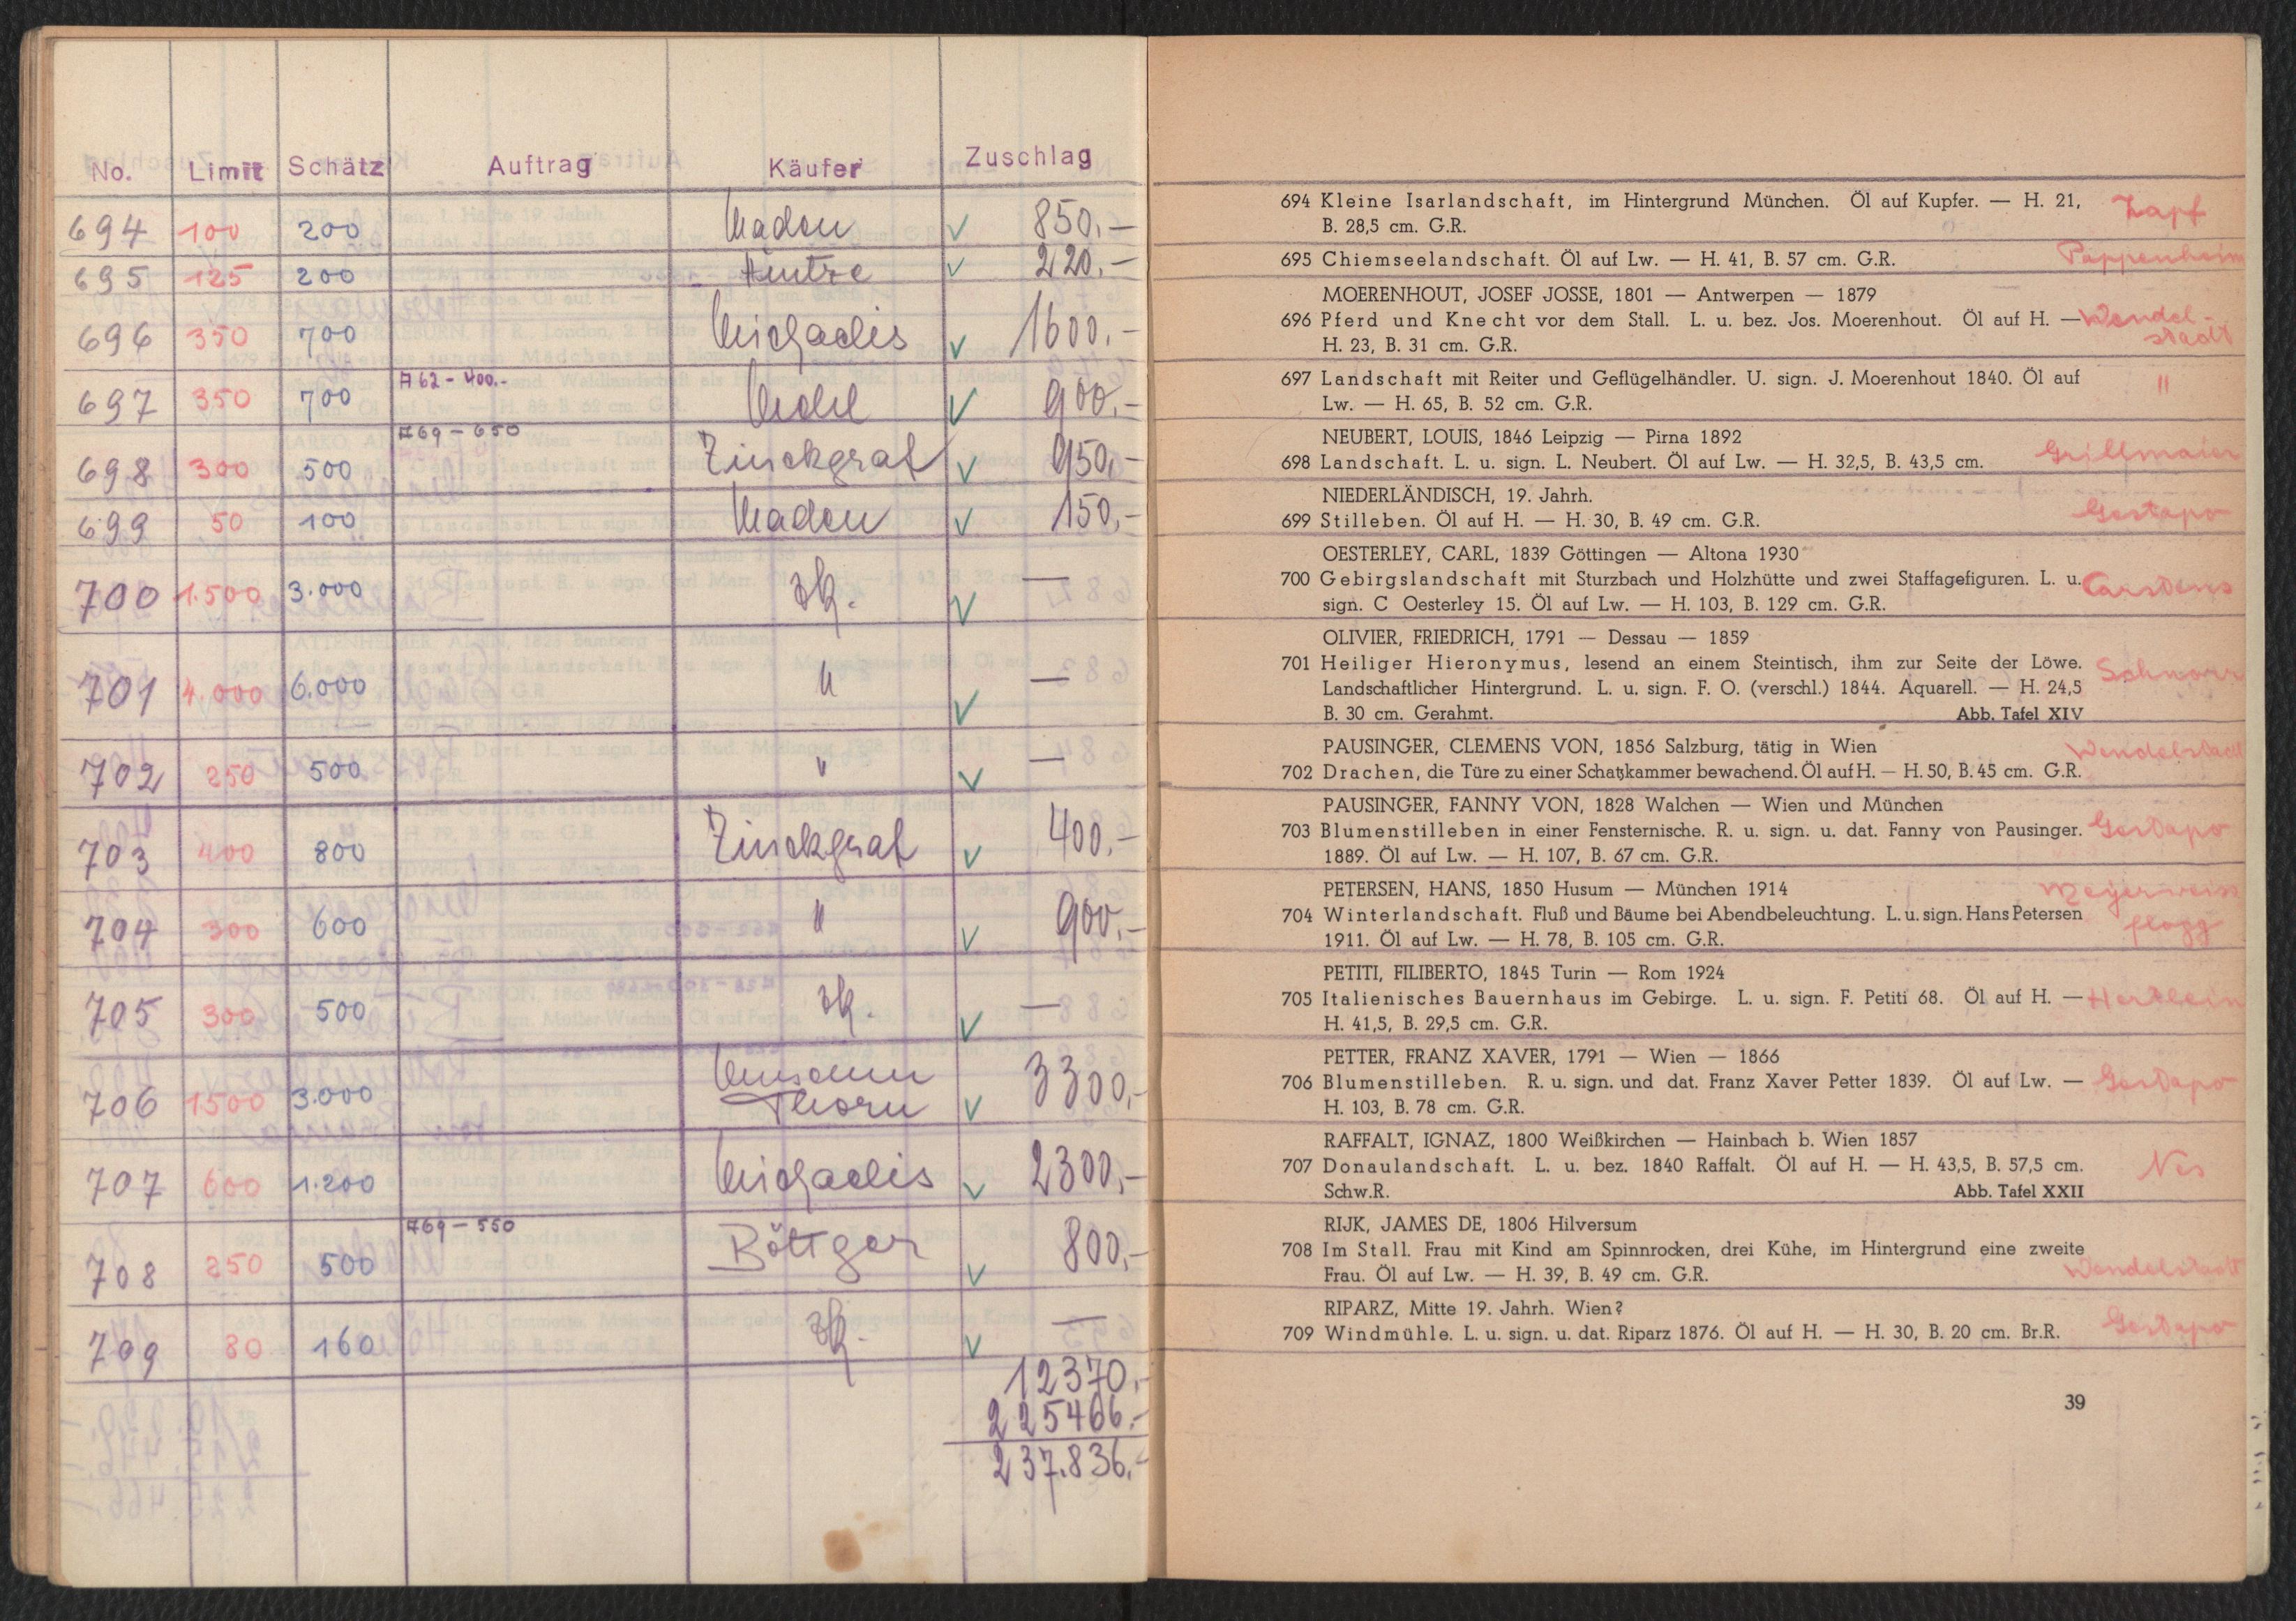 No. Limit Schätz Auftrag Käufer Zuschlag
694 100 200 Maden ✓ 850,–
695 125 200 Hintze ✓ 220,–
696 350 700 Michaelis ✓ 1600,–
697 350 700 A 62 – 400.– ✓ 900,–
698 300 500 A 69 – 650 Zinckgraf ✓ 950,–
699 50 100 Maden ✓ 150,–
700 1.500 3.000 zk. ✓ —
701 4.000 6.000 " ✓ —
702 250 500 " ✓ —
703 400 800 Zinckgraf ✓ 400,–
704 300 600 " ✓ 900,–
705 300 500 zk. ✓ —
706 1500 3.000 Thorn ✓ 3300,–
707 600 1.200 Michaelis ✓ 2300,–
708 250 500 A 69 – 550 Böttger ✓ 800,–
709 80 160 zk. ✓ —
12370,–
225466.–
237.836,–
694 Kleine Isarlandschaft, im Hintergrund München. Öl auf Kupfer. — H. 21, Zapf
B. 28,5 cm. G.R.
695 Chiemseelandschaft. Öl auf Lw. — H. 41, B. 57 cm. G.R. Pappenheim
MOERENHOUT, JOSEF JOSSE, 1801 — Antwerpen — 1879
696 Pferd und Knecht vor dem Stall. L. u. bez. Jos. Moerenhout. Öl auf H. — Wendel-
H. 23, B. 31 cm. G.R. stadt
697 Landschaft mit Reiter und Geflügelhändler. U. sign. J. Moerenhout 1840. Öl auf "
Lw. — H. 65, B. 52 cm. G.R.
NEUBERT, LOUIS, 1846 Leipzig — Pirna 1892
698 Landschaft. L. u. sign. L. Neubert. Öl auf Lw. — H. 32,5, B. 43,5 cm. Grillmaier
NIEDERLÄNDISCH, 19. Jahrh.
699 Stilleben. Öl auf H. — H. 30, B. 49 cm. G.R. Gestapo
OESTERLEY, CARL, 1839 Göttingen — Altona 1930
700 Gebirgslandschaft mit Sturzbach und Holzhütte und zwei Staffagefiguren. L. u. Carstens
sign. C Oesterley 15. Öl auf Lw. — H. 103, B. 129 cm. G.R.
OLIVIER, FRIEDRICH, 1791 — Dessau — 1859
701 Heiliger Hieronymus, lesend an einem Steintisch, ihm zur Seite der Löwe. Schnorr
Landschaftlicher Hintergrund. L. u. sign. F. O. (verschl.) 1844. Aquarell. — H. 24,5
B. 30 cm. Gerahmt. Abb. Tafel XIV
PAUSINGER, CLEMENS VON, 1856 Salzburg, tätig in Wien Wendelstadt
702 Drachen, die Türe zu einer Schatzkammer bewachend. Öl auf H. — H. 50, B. 45 cm. G.R.
PAUSINGER, FANNY VON, 1828 Walchen — Wien und München
703 Blumenstilleben in einer Fensternische. R. u. sign. u. dat. Fanny von Pausinger. Gestapo
1889. Öl auf Lw. — H. 107, B. 67 cm. G.R.
PETERSEN, HANS, 1850 Husum — München 1914
704 Winterlandschaft. Fluß und Bäume bei Abendbeleuchtung. L. u. sign. Hans Petersen
1911. Öl auf Lw. — H. 78, B. 105 cm. G.R.
PETITI, FILIBERTO, 1845 Turin — Rom 1924
705 Italienisches Bauernhaus im Gebirge. L. u. sign. F. Petiti 68. Öl auf H. — Hertlein
H. 41,5, B. 29,5 cm. G.R.
PETTER, FRANZ XAVER, 1791 — Wien — 1866
706 Blumenstilleben. R. u. sign. und dat. Franz Xaver Petter 1839. Öl auf Lw. — Gestapo
H. 103, B. 78 cm. G.R.
RAFFALT, IGNAZ, 1800 Weißkirchen — Hainbach b. Wien 1857
707 Donaulandschaft. L. u. bez. 1840 Raffalt. Öl auf H. — H. 43,5, B. 57,5 cm. Nes
Schw.R. Abb. Tafel XXII
RIJK, JAMES DE, 1806 Hilversum
708 Im Stall. Frau mit Kind am Spinnrocken, drei Kühe, im Hintergrund eine zweite
Frau. Öl auf Lw. — H. 39, B. 49 cm. G.R. Wendelstadt
RIPARZ, Mitte 19. Jahrh. Wien?
709 Windmühle. L. u. sign. u. dat. Riparz 1876. Öl auf H. — H. 30, B. 20 cm. Br.R. Gestapo
39